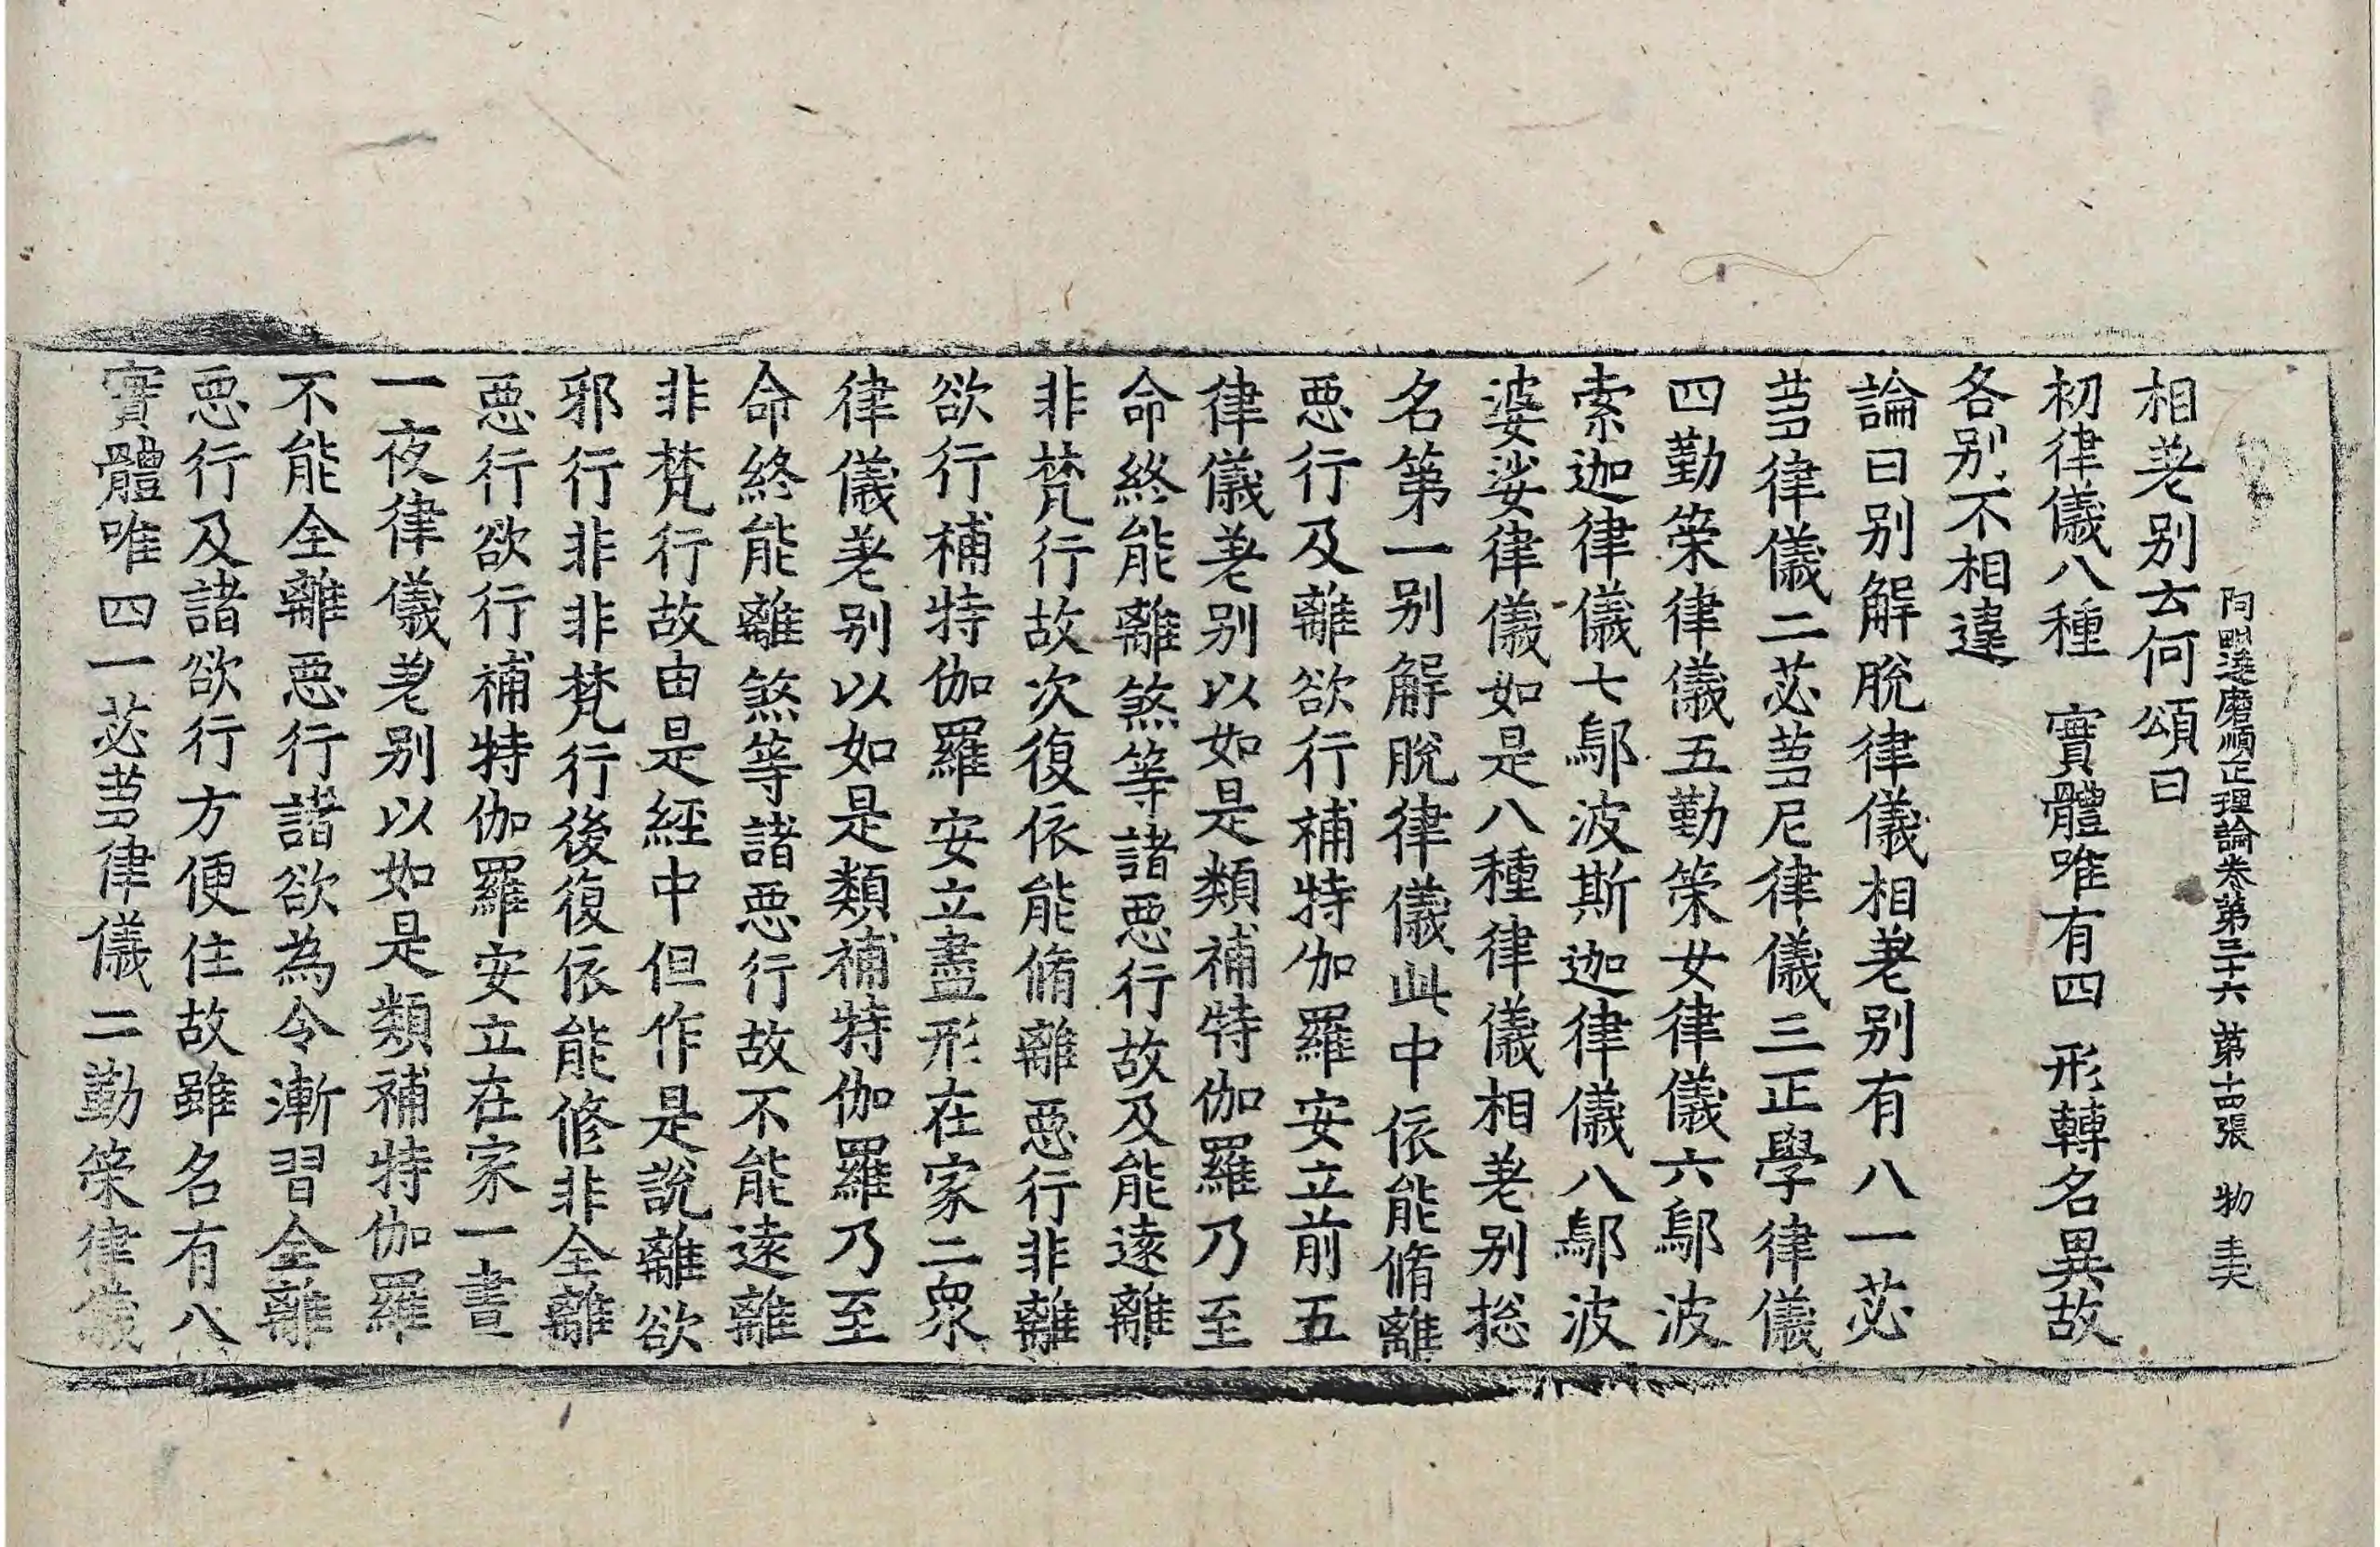 阿毗達磨順正理論卷第三十六 第十四張 物
相差别云何頌曰
初律儀八種 實體唯有四 形轉名異故
各别不相違
論曰别解脫律儀相差别有八一苾
芻律儀二苾芻尼律儀三正學律儀
四勤策律儀五勤策女律儀六鄔波
索迦律儀七鄔波斯迦律儀八鄔波
婆娑律儀如是八種律儀相差别揔
名第一别解脫律儀此中依能脩離
惡行及離欲行補特伽羅安立前五
律儀差别以如是類補特伽羅乃至
命終能離煞等諸惡行故及能遠離
非梵行故次復依能脩離惡行非離
欲行補特伽羅安立盡形在家二衆
律儀差别以如是類補特伽羅乃至
命終能離煞等諸惡行故不能遠離
非梵行故由是經中但作是說離欲
邪行非非梵行後復依能修非全離
惡行欲行補特伽羅安立在家一晝
一夜律儀差别以如是類補特伽羅
不能全離惡行諸欲為令漸習全離
惡行及諸欲行方便住故雖名有八
實體唯四一苾芻律儀二勤策律儀